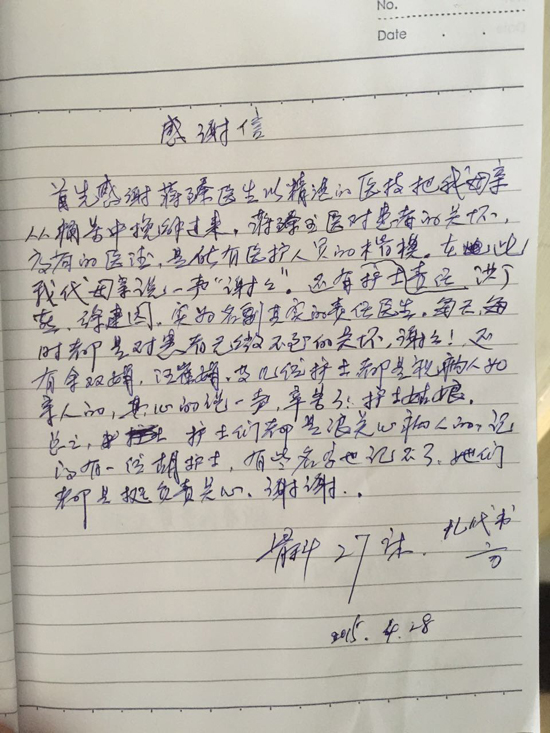 No.
Date
感谢信
首先感谢蒋臻医生以精湛的医技把我母亲
从痛苦中挽回过来。蒋臻主医对患者的关怀,
高尚的医德,是所有医护人员的楷模。在此
我代母亲说一声"谢谢"。还有护士责任
徐建国,实为名副其实的责任医生,每天每
时都是对患者无微不至的关怀,谢谢!还
有余双娟,汪 娟,及几位护士都是视病人如
亲人的,真心的说一声,辛苦了!护士姑娘。
总之,护士们都是很关心病人的,记
得有一位胡护士,有些名字也记不了,她们
都是挺负责关心。谢谢..
骨科27床.
2015.4.28